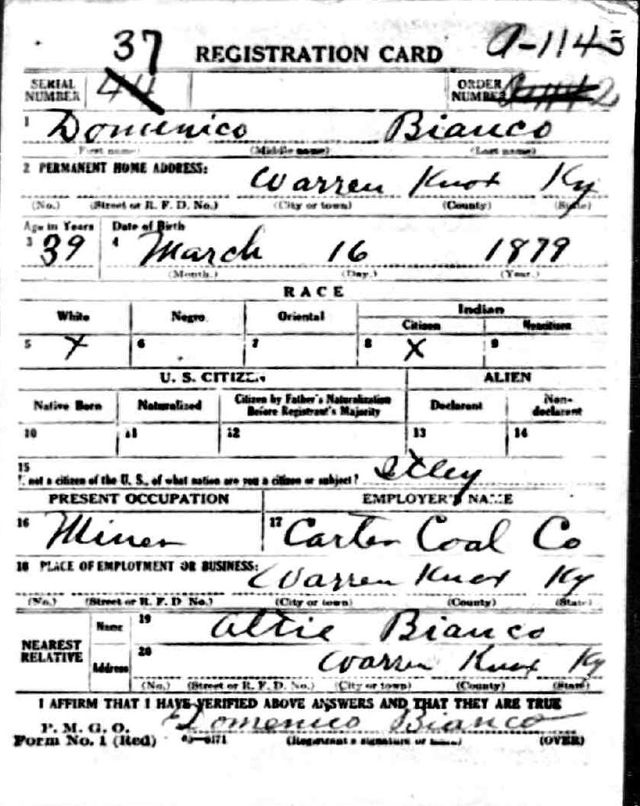 37 REGISTRATION CARD A-1143
SERIAL NUMBER 44 ORDER NUMBER
1 Domenico Bianco
(First name) (Middle name) (Last name)
2 PERMANENT HOME ADDRESS:
Warren Knox Ky
(No.) (Street or R. F. D. No.) (City or town) (County) (State)
Age in Years Date of Birth
3 39 4 March 16 1879
(Month.) (Day.) (Year.)
RACE
White Negro Oriental Indian
Citizen Noncitizen
5 X 6 7 8 X 9
U. S. CITIZEN ALIEN
Native Born Naturalized Citizen by Father's Naturalization Before Registrant's Majority Declarant Non-declarant
10 11 12 13 14
15
If not a citizen of the U. S., of what nation are you a citizen or subject? Itley
PRESENT OCCUPATION EMPLOYER'S NAME
16 Miner 17 Carter Coal Co
18 PLACE OF EMPLOYMENT OR BUSINESS:
Warren Knox Ky
(No.) (Street or R. F. D. No.) (City or town) (County) (State)
NEAREST RELATIVE Name 19 Altie Bianco
Address 20 Warren Knox Ky
(No.) (Street or R. F. D. No.) (City or town) (County) (State)
I AFFIRM THAT I HAVE VERIFIED ABOVE ANSWERS AND THAT THEY ARE TRUE
P. M. G. O. Domenico Bianco
Form No. 1 (Red) 03—6171 (Registrant's signature or mark) (OVER)